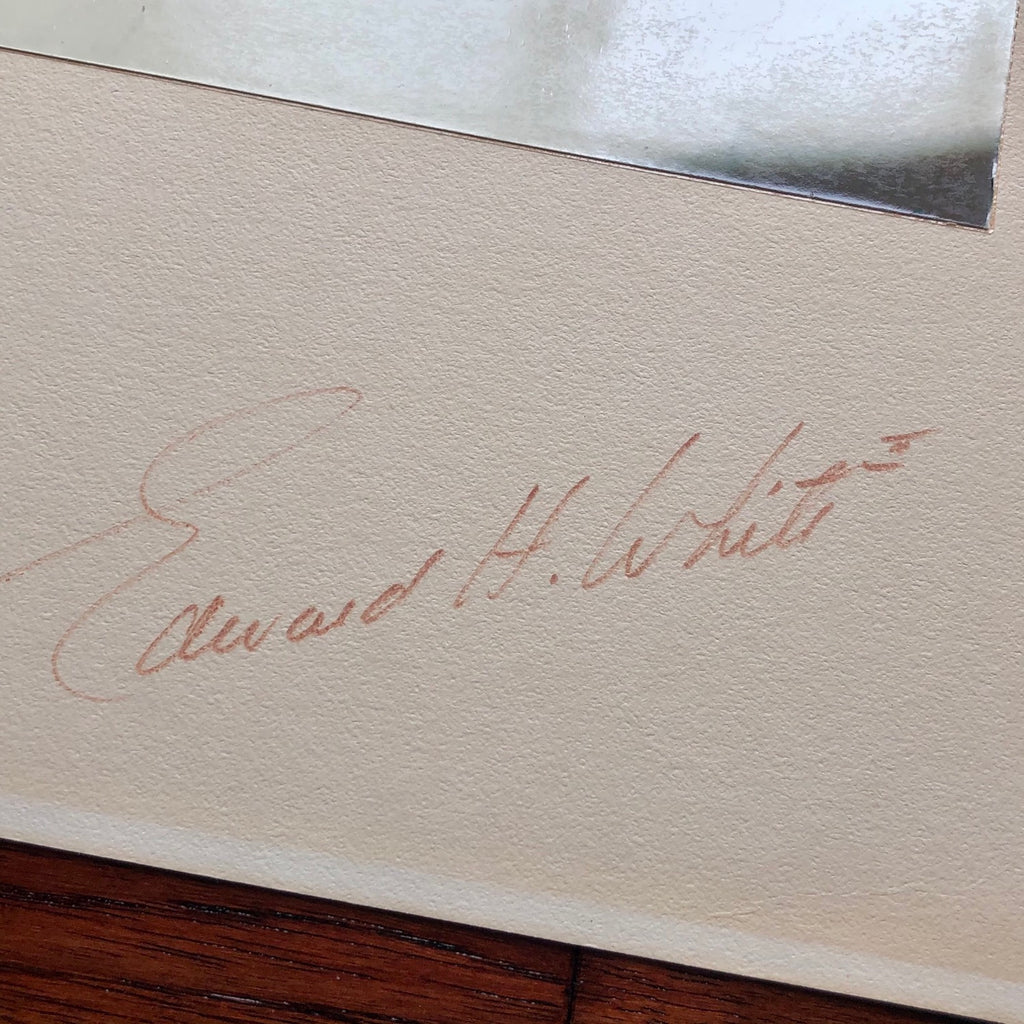 Edward H. White II